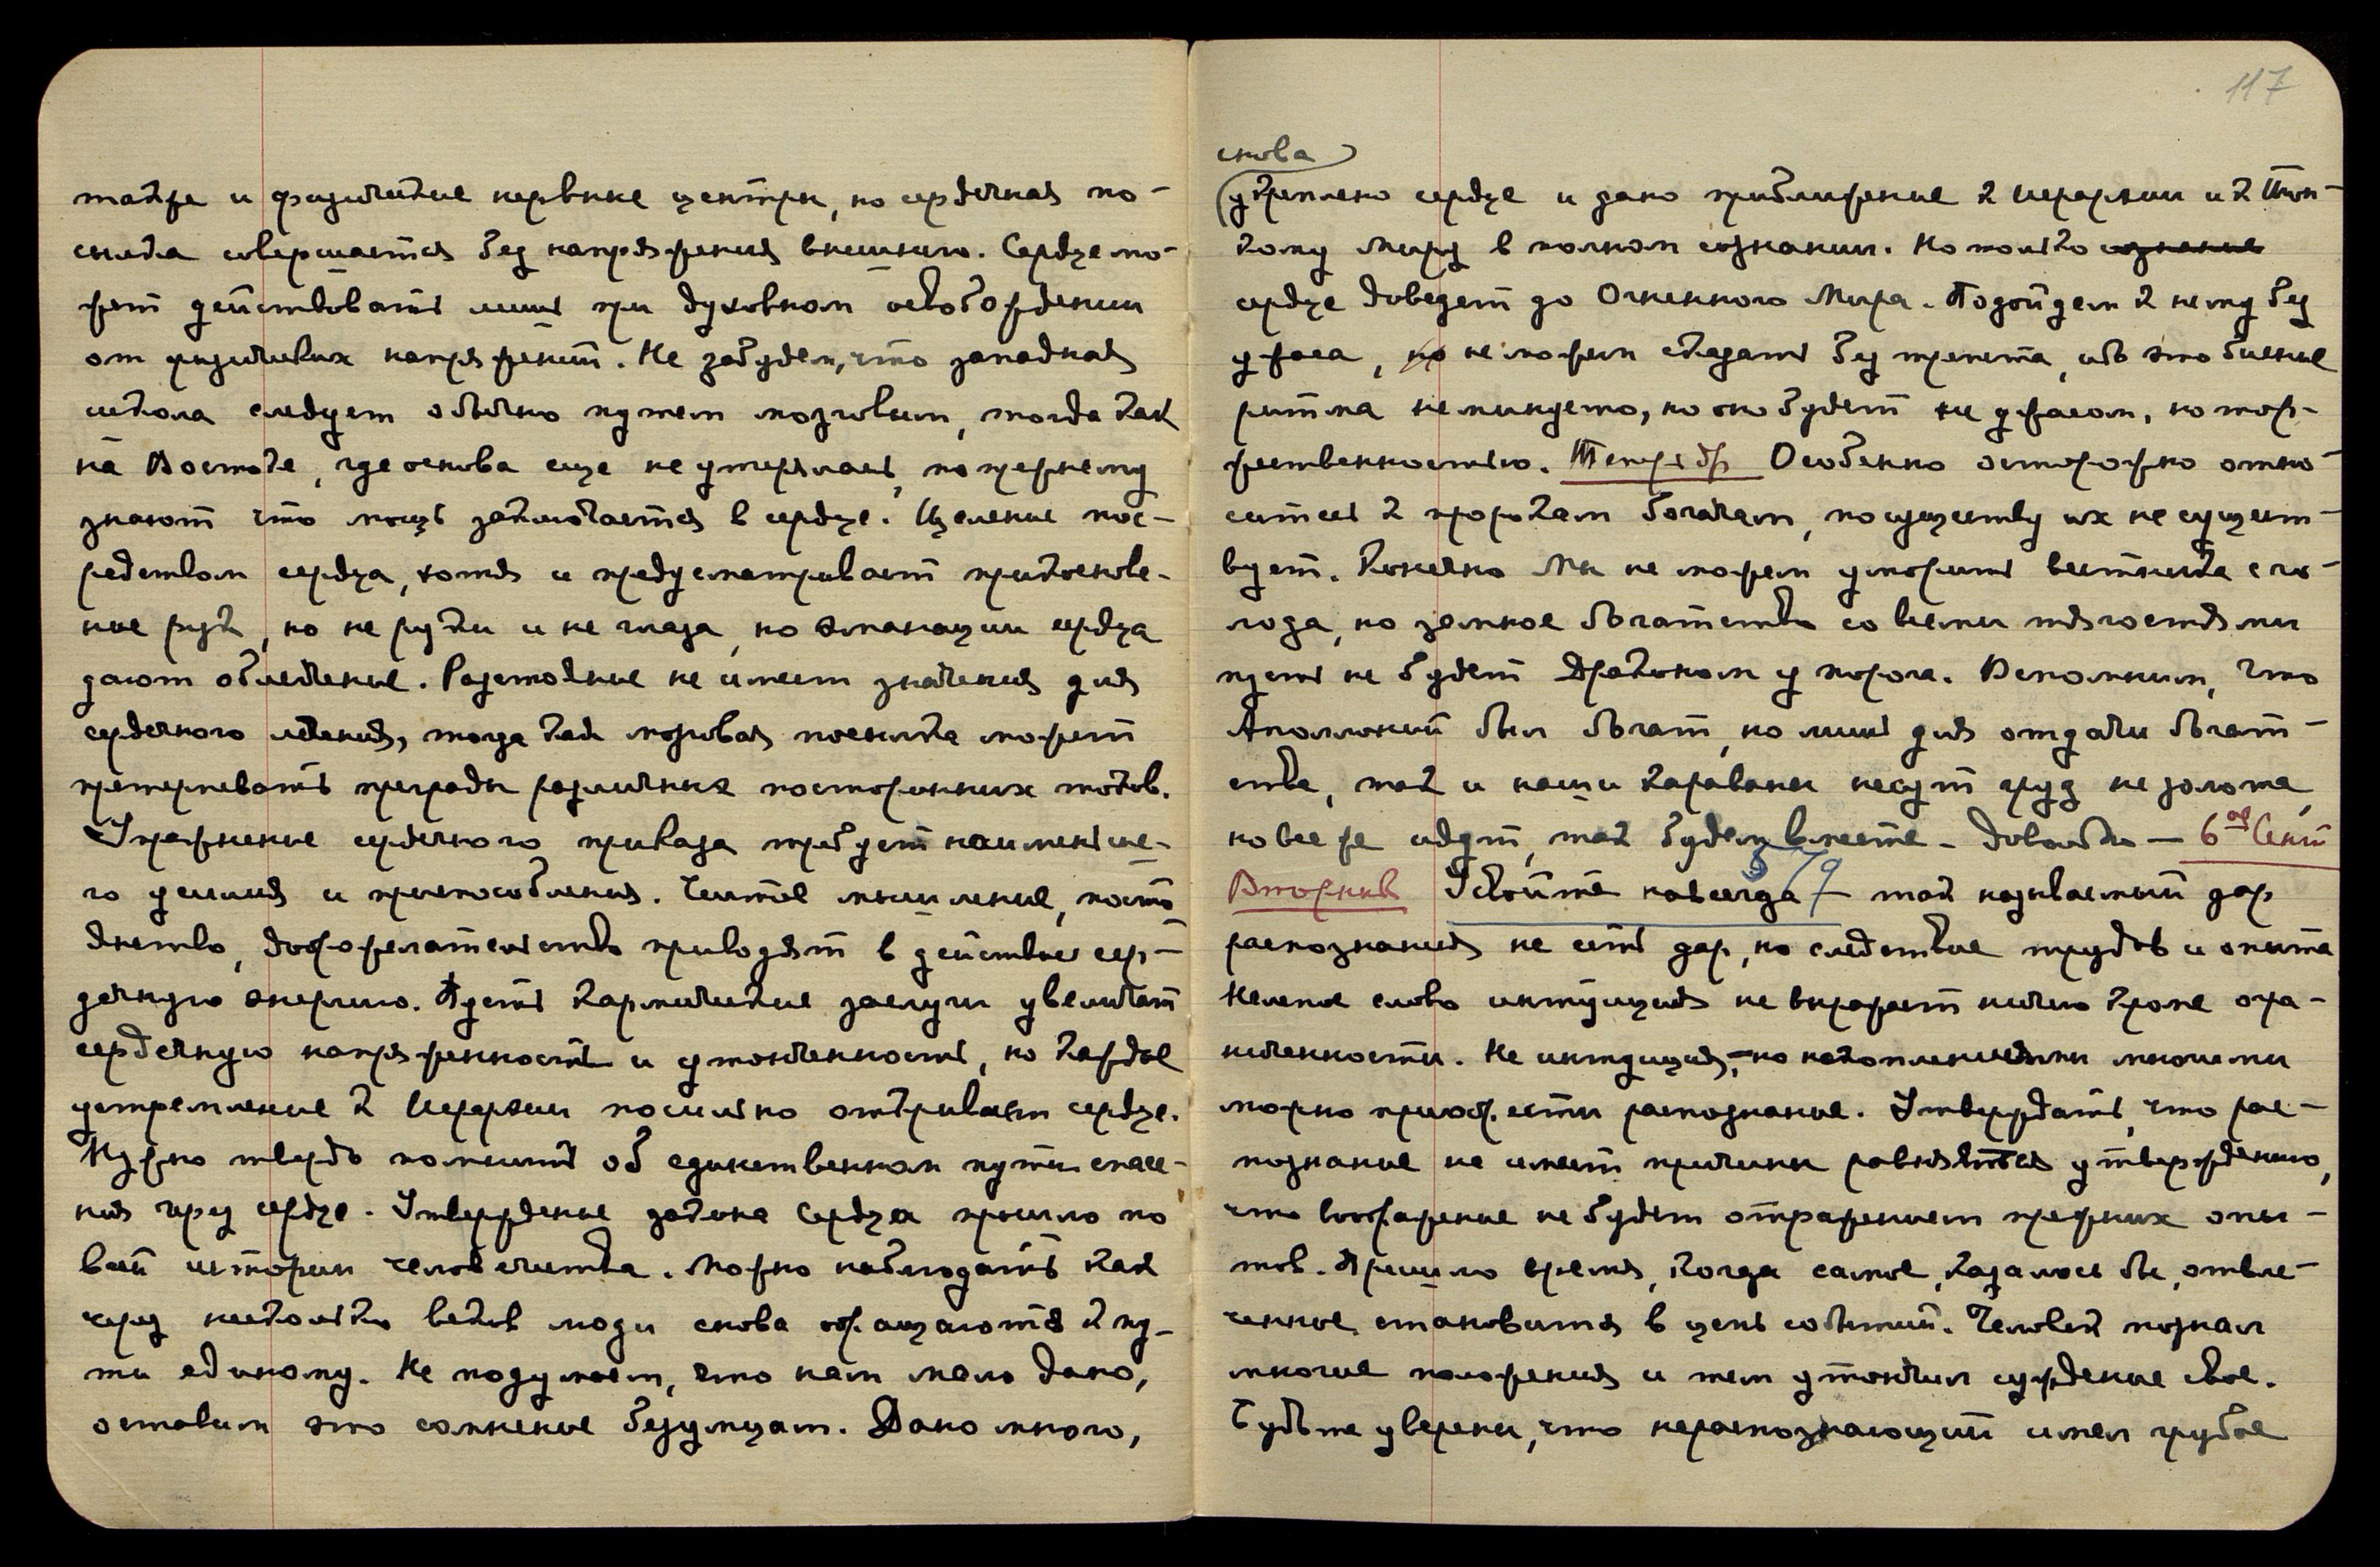 также и физические нервные центры, но сердечная по-
сылка совершается без напряжения внешнего. Сердце мо-
жет действовать лишь при духовном освобождении
от физических напряжений. Не забудем, что западная
школа следует обычно путем мозговым, тогда как
на Востоке, где основа еще не утерялась, по прежнему
знают что мощь заключается в сердце. Целение пос-
редством сердца, хотя и предусматривает прикоснове-
ние рук, но не руки и не глаза, но эманации сердца
дают облегчение. Расстояние не имеет значения для
сердечного лечения, тогда как мозговая посылка может
претерпевать преграды различных посторонних токов.
Упражнение сердечного приказа требует наименьше-
го усилия и приспособления. Чистое мышление, посто
янство, доброжелательство приводят в действие сер-
дечную энергию. Пусть кармические заслуги увеличат
сердечную напряженность и утонченность, но каждое
устремление к Иерархии посильно открывает сердце.
Нужно твердо помнить об единственном пути спасе-
ния чрез сердце. Утверждение закона Сердца прошло по
всей истории человечества. Можно наблюдать как
через несколько веков люди снова обращаются к пу-
ти единому. Не подумаем, что нам мало дано,
оставим это сомнение безумцам. Дано много,
117
снова
укреплено сердце и дано приближение к Иерархии и к Тон-
кому Миру в полном сознании. Но только сознание
сердце доведет до Огненного Мира. Подойдем к нему без
ужаса, но не можем сказать без трепета, ибо это биение
ритма неминуемо, но оно будет не ужасом, но тор-
жественностью. Теперь др. Особенно осторожно отно-
ситесь к пророкам богачам, по существу их не сущест-
вует. Конечно Мы не можем уморить вестника с го-
лода, но земное богатство со всеми тягостями
пусть не будет Драконом у порога. Вспомним, что
Аполлоний был богат, но лишь для отдачи богат-
ства, так и наши караваны несут груз не золота,
но все же идут, так будем вместе. Довольно — 6ое Сент
Вторник Усвойте навсегда — так называемый дар
распознания не есть дар, но следствие трудов и опыта
Нелепое слово интуиция не выражает ничего кроме огра-
ниченности. Не интуиция, — но накоплениями многими
можно приобрести распознание. Утверждать, что рас-
познание не имеет причины равняется утверждению,
что воображение не будет отражением прежних опы-
тов. Пришло время, когда самое, казалось бы, отвле-
ченное становится в цепь событий. Человек познал
многие положения и тем утончил суждение свое.
Будьте уверены, что нераспознающий имел грубое